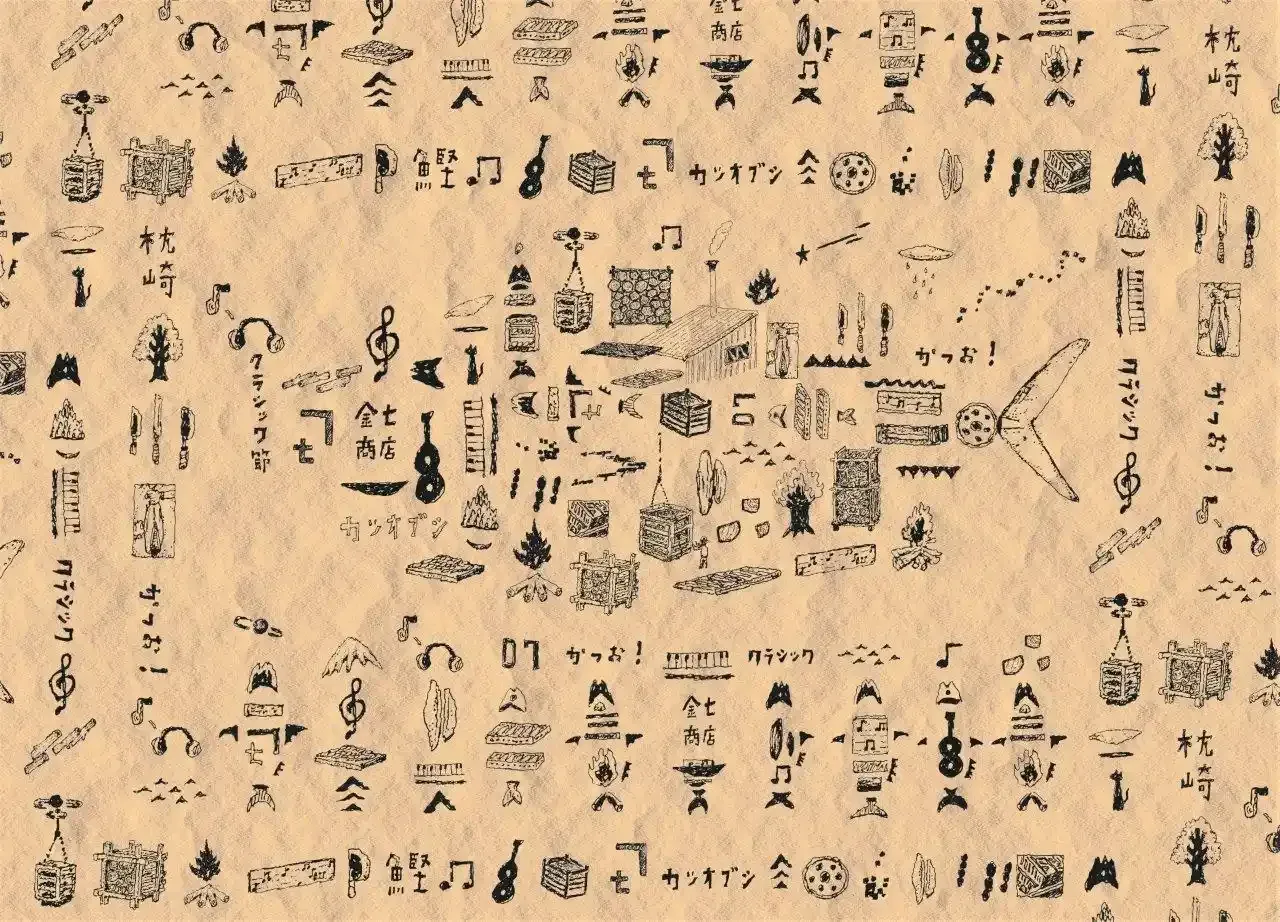 商店
枕
崎
鰹
カツオブシ
枕
崎
クラシック節
金七
商店
カツオブシ
かつお!
クラシック
かつお!
クラシック
かつお!
07
かつお!
クラシック
金七
商店
枕
崎
鰹
カツオブシ